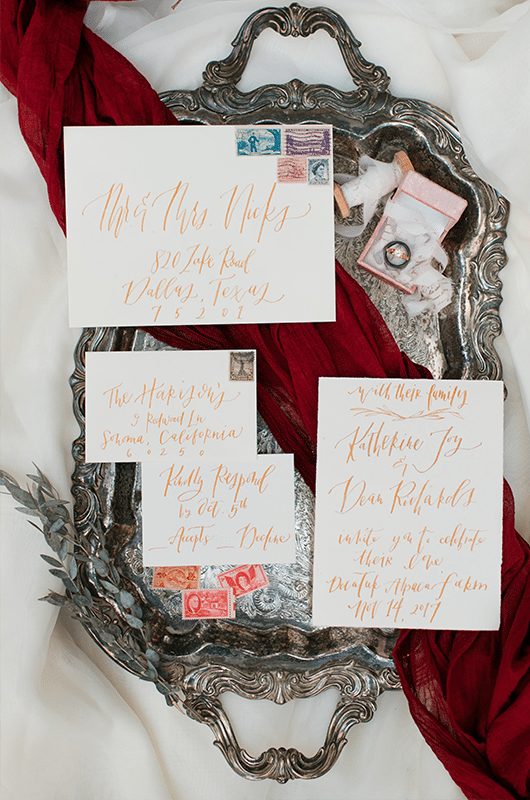 Mr & Mrs. Nicks
820 Lake Road
Dallas, Texas
75201
The Harison's
9 Redwood Ln
Sonoma, California
60250
Kindly Respond
by Oct 5th
_Accepts _Decline
with their family
Katherine Joy
&
Dean Richards
invite you to celebrate
their love
Alpaca Farm
Nov 14, 2017